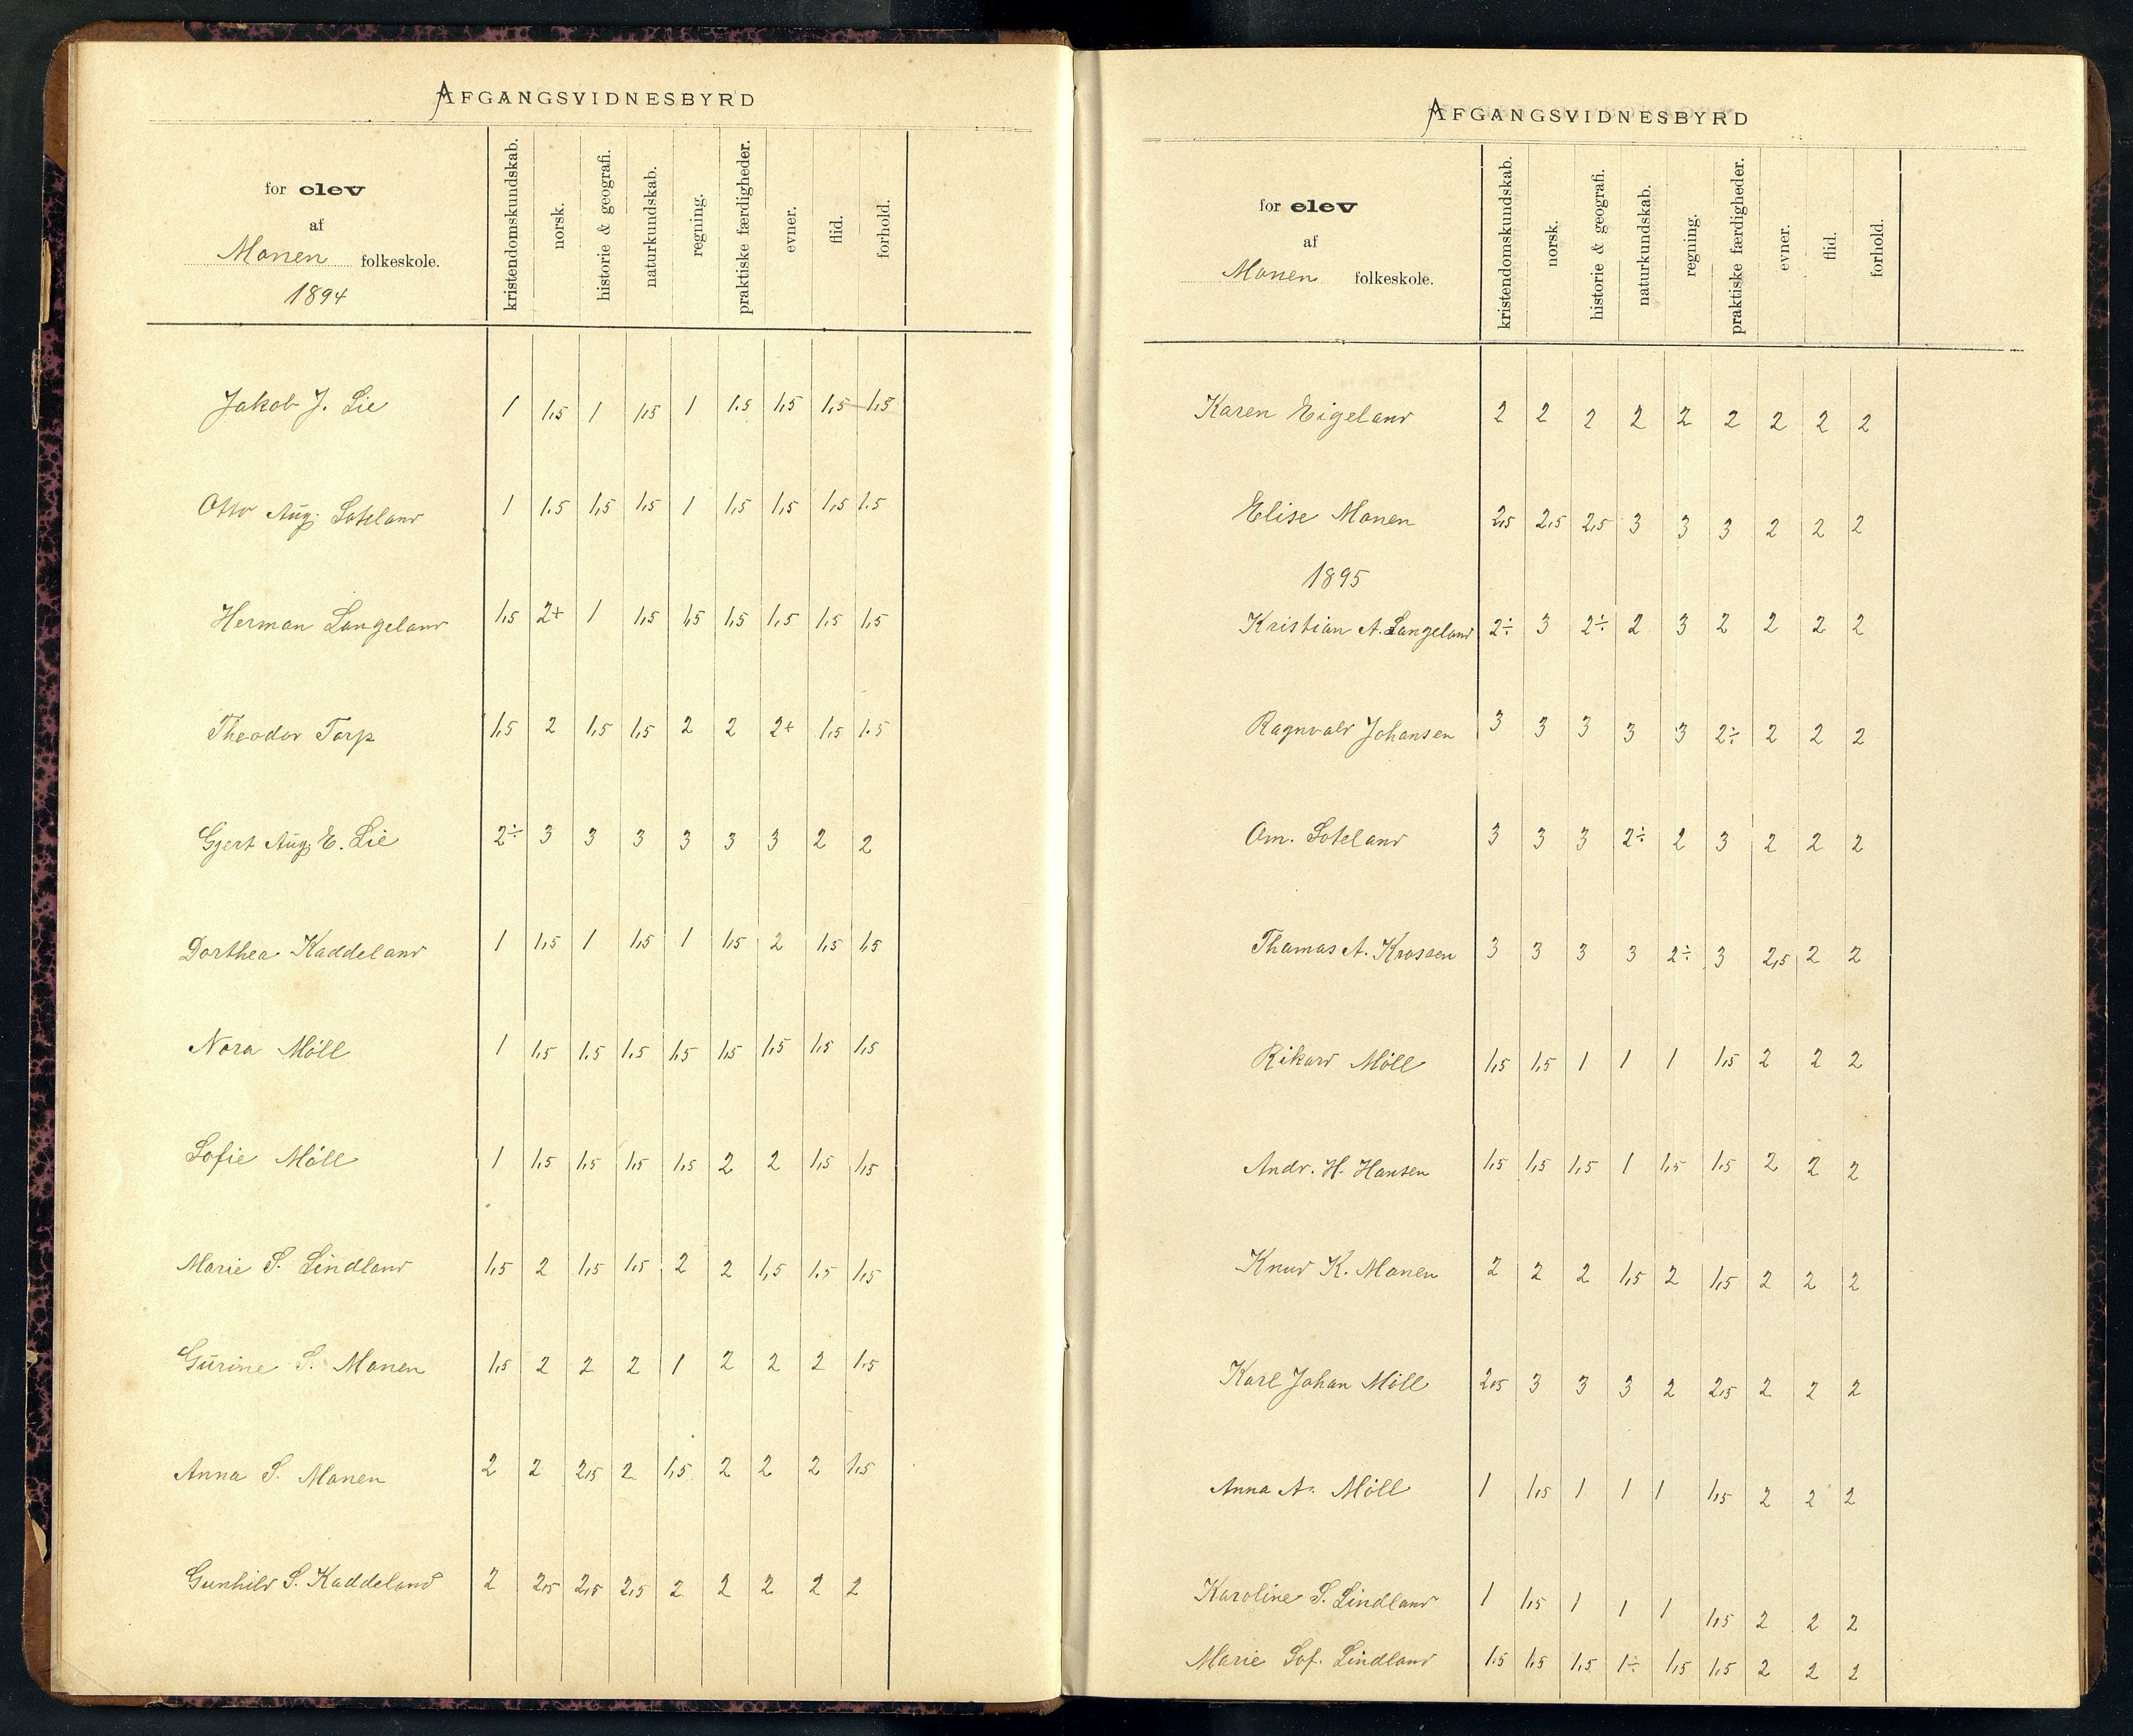 AFGANGSVIDNESBYRD
for elev
af
Monen folkeskole.
1894
kristendomskundskab.
norsk.
historie & geografi.
naturkundskab.
regning.
praktiske færdigheder.
evner.
flid.
forhold.
Jakob J. Lie 1 1,5 1 1,5 1 1.5 1,5 1,5 1,5
Otto Aug. Loteland 1 1.5 1,5 1,5 1 1,5 1,5 1,5 1.5
Herman Langeland 1,5 2+ 1 1,5 1,5 1,5 1,5 1,5 1,5
Theodor Torp 1,5 2 1,5 1,5 2 2 2+ 1,5 1.5
Gjert Aug. E. Lie 2÷ 3 3 3 3 3 3 2 2
Dorthea Kaddeland 1 1,5 1 1,5 1 1,5 2 1,5 1,5
Nora Möll 1 1,5 1.5 1,5 1,5 1,5 1,5 1,5 1,5
Sofie Möll 1 1,5 1,5 1,5 1,5 2 2 1,5 1,5
Marie S. Lindland 1,5 2 1,5 1,5 2 2 1,5 1,5 1,5
Gurine S. Monen 1,5 2 2 2 1 2 2 2 1.5
Anna S. Monen 2 2 2,5 2 1,5 2 2 2 1,5
Gunhild S. Kaddeland 2 2,5 2,5 2,5 2 2 2 2 2
AFGANGSVIDNESBYRD
for elev
af
Monen folkeskole.
kristendomskundskab.
norsk.
historie & geografi.
naturkundskab.
regning.
praktiske færdigheder.
evner.
flid.
forhold.
Karen Eigeland 2 2 2 2 2 2 2 2 2
Elise Monen 2,5 2,5 2,5 3 3 3 2 2 2
1895
Kristian A. Langeland 2÷ 3 2÷ 2 3 2 2 2 2
Ragnvald Johansen 3 3 3 3 3 2÷ 2 2 2
Om. Loteland 3 3 3 2÷ 2 3 2 2 2
Thomas A. Krossen 3 3 3 3 2÷ 3 2,5 2 2
Rikard Möll 1,5 1,5 1 1 1 1,5 2 2 2
Andr. H. Hansen 1,5 1,5 1,5 1 1,5 1,5 2 2 2
Knud K. Monen 2 2 2 1,5 2 1,5 2 2 2
Karl Johan Möll 2,5 3 3 3 2 2,5 2 2 2
Anna A. Möll 1 1,5 1 1 1 1,5 2 2 2
Karoline S. Lindland 1 1,5 1 1 1 1,5 2 2 2
Marie Sof. Lindland 1.5 1,5 1,5 1÷ 1,5 1,5 2 2 2